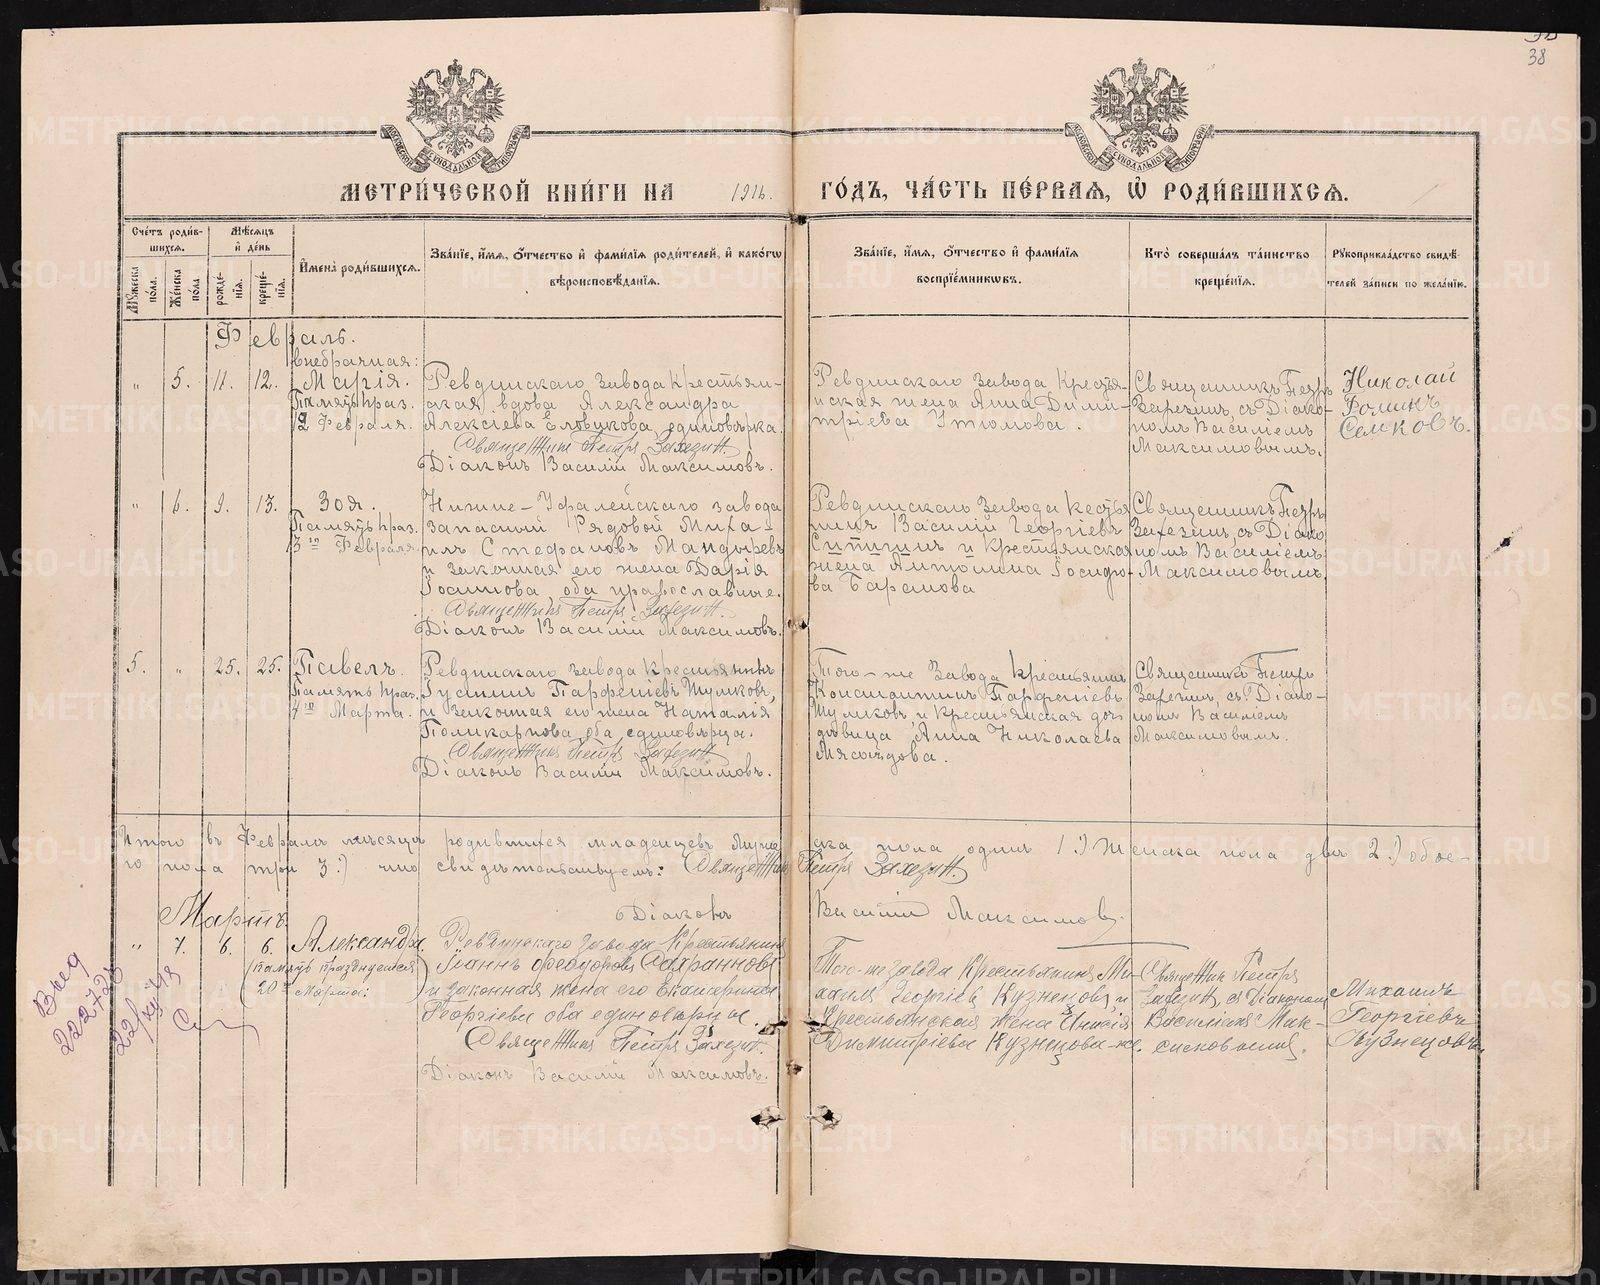 38
МЕТРИ́ЧЕСКОЙ КНИ́ГИ НА 1916. ГО́ДЪ, ЧА́СТЬ ПЕ́РВАЯ, Ѡ҆ РОДИ́ВШИХСЯ.
Сче́тъ роди́в-
шихся.
Му́жеска по́ла.
Же́нска по́ла
Мѣ́сяцъ
и҆ де́нь
рожде́-
нія.
креще́-
нія.
И҆мена̀ роди́вшихся.
Зва́ніе, и҆́мя, ѻ҆́тчество и҆ фами́лія роди́телей, и҆ како́гѡ
вѣроисповѣ́данія.
Зва́ніе, и҆́мя, ѻ҆́тчество и҆ фами́лія
воспріе́мникѡвъ.
Кто̀ соверша́лъ та́инство
креще́нія.
Рꙋкоприкла́дство свидѣ́-
телей за́писи по жела́нію.
Февраль.
внебрачная:
" 5. 11. 12. Марія.
Память праз.
12 Февраля.
Ревдинскаго завода крестьян-
ская вдова Александра
Алексіева Еловикова единовѣрка.
Священникъ Петръ
Діаконъ Василій Максимовъ.
Ревдинскаго завода Крестья-
нская жена Анна Дими-
тріева Утюмова.
Священникъ Петръ
съ Діако-
номъ Василіемъ
Максимовымъ.
Николай
Фоминъ
" 6. 9. 13. Зоя.
Память праз.
13го Февраля.
Нижне-Уфалейскаго завода
запасный Рядовой Миха-
илъ Стефановъ Мандыревъ
и законная его жена Дарія
оба православные.
Священникъ Петръ
Діаконъ Василій Максимовъ.
Ревдинскаго завода
Василій Георгіевъ
и Крестьянская
жена Антонина
ва Баранова
Священникъ Петръ
съ Діако
номъ Василіемъ
Максимовымъ.
5. " 25. 25. Павелъ.
Память праз.
4го Марта.
Ревдинскаго завода крестьянинъ
Парфеніевъ Шумковъ,
и законная его жена Наталія
Поликарпова, оба единовѣрцы.
Священникъ Петръ
Діаконъ Василій Максимовъ.
Того-же завода крестьянинъ
Константинъ Парфеніевъ
Шумковъ, и крестьянская
дѣвица Анна Николаева
Мясоѣдова.
Священникъ Петръ
съ Діако-
номъ Василіемъ
Максимовымъ.
Итого въ Февралѣ мѣсяцѣ родившихся младенцевъ муже ска пола одинъ 1.) Женска пола двѣ 2.) обое-
го пола три 3.) что свидѣтельствуемъ: Священникъ Петръ
Діаконъ Василій Максимовъ.
Мартъ.
" 7. 6. 6. Александра
(память празднуется
20го Марта:
Ревдинскаго завода Крестьянинъ
Іоаннъ Ѳеодоровъ
и законная жена его Екатерина
Георгіева оба единовѣрцы.
Священникъ Петръ
Діаконъ Василій Максимовъ.
Того-же завода Крестьянинъ Ми-
хаилъ Георгіевъ Кузнецовъ, и
Крестьянская жена
Димитріева Кузнецова-же.
Священникъ Петръ
съ Діакономъ
Василіемъ Мак-
симовымъ.
Михаилъ
Георгіевъ
Кузнецовъ